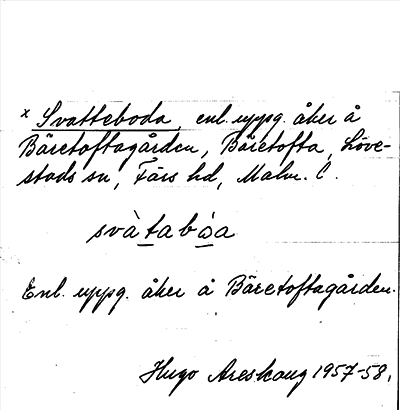 x Svatteboda, enl. uppg. åker å
Bäretoftagården, Bäretofta, Löve-
stads sn, Färs hd, Malm. C.
svàtabòa
Enl. uppg. åker å Bäretoftagården.
Hugo Areskoug 1957-58.